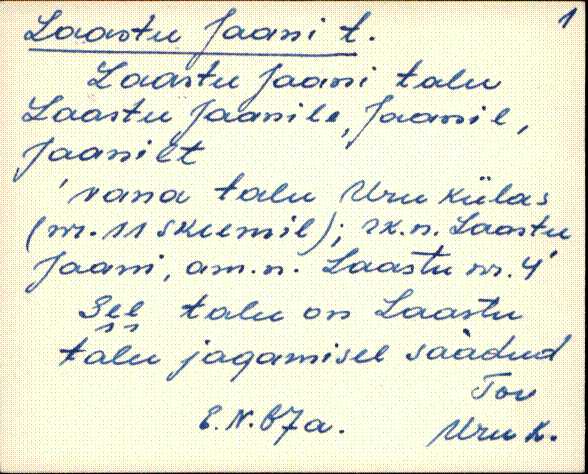 1
Laastu Jaani t.
Laastu Jaani talu
Laastu Jaanile, Jaanil,
Jaanilt
'vana talu Uru külas
(nr. 11 skeemil); rk.n. Laastu
Jaani, am.n. Laastu nr. 4'
See talu on Laastu
talu jagamisel saadud
Tov
E.N. 67a. Uru k.